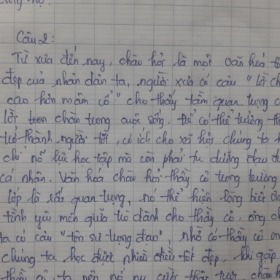 Câu 2:
Từ xưa đến nay, chào hỏi là một văn hóa
đẹp của nhân dân ta, người xưa có câu "Lời ch
cao hơn mâm cỗ" cho thấy tầm quan trọng c
lời trong cuộc sống. Để có thể trưởng th
trở thành người tốt, có ích cho xã hội chúng ta
chỉ nó học tập mà còn phải tu dưỡng đạo đ
cá nhân. Văn hóa chào hỏi thầy cô trong trường
lớp là rất quan trọng, nó thể hiện lòng biết
tình yêu mến quý dành cho thầy cô. ông ch
ta có câu "tôn sư trọng đạo" nhờ có thầy cô
chúng ta học được nhiều điều tốt đẹp. khi gặp
thầy cô ta nên